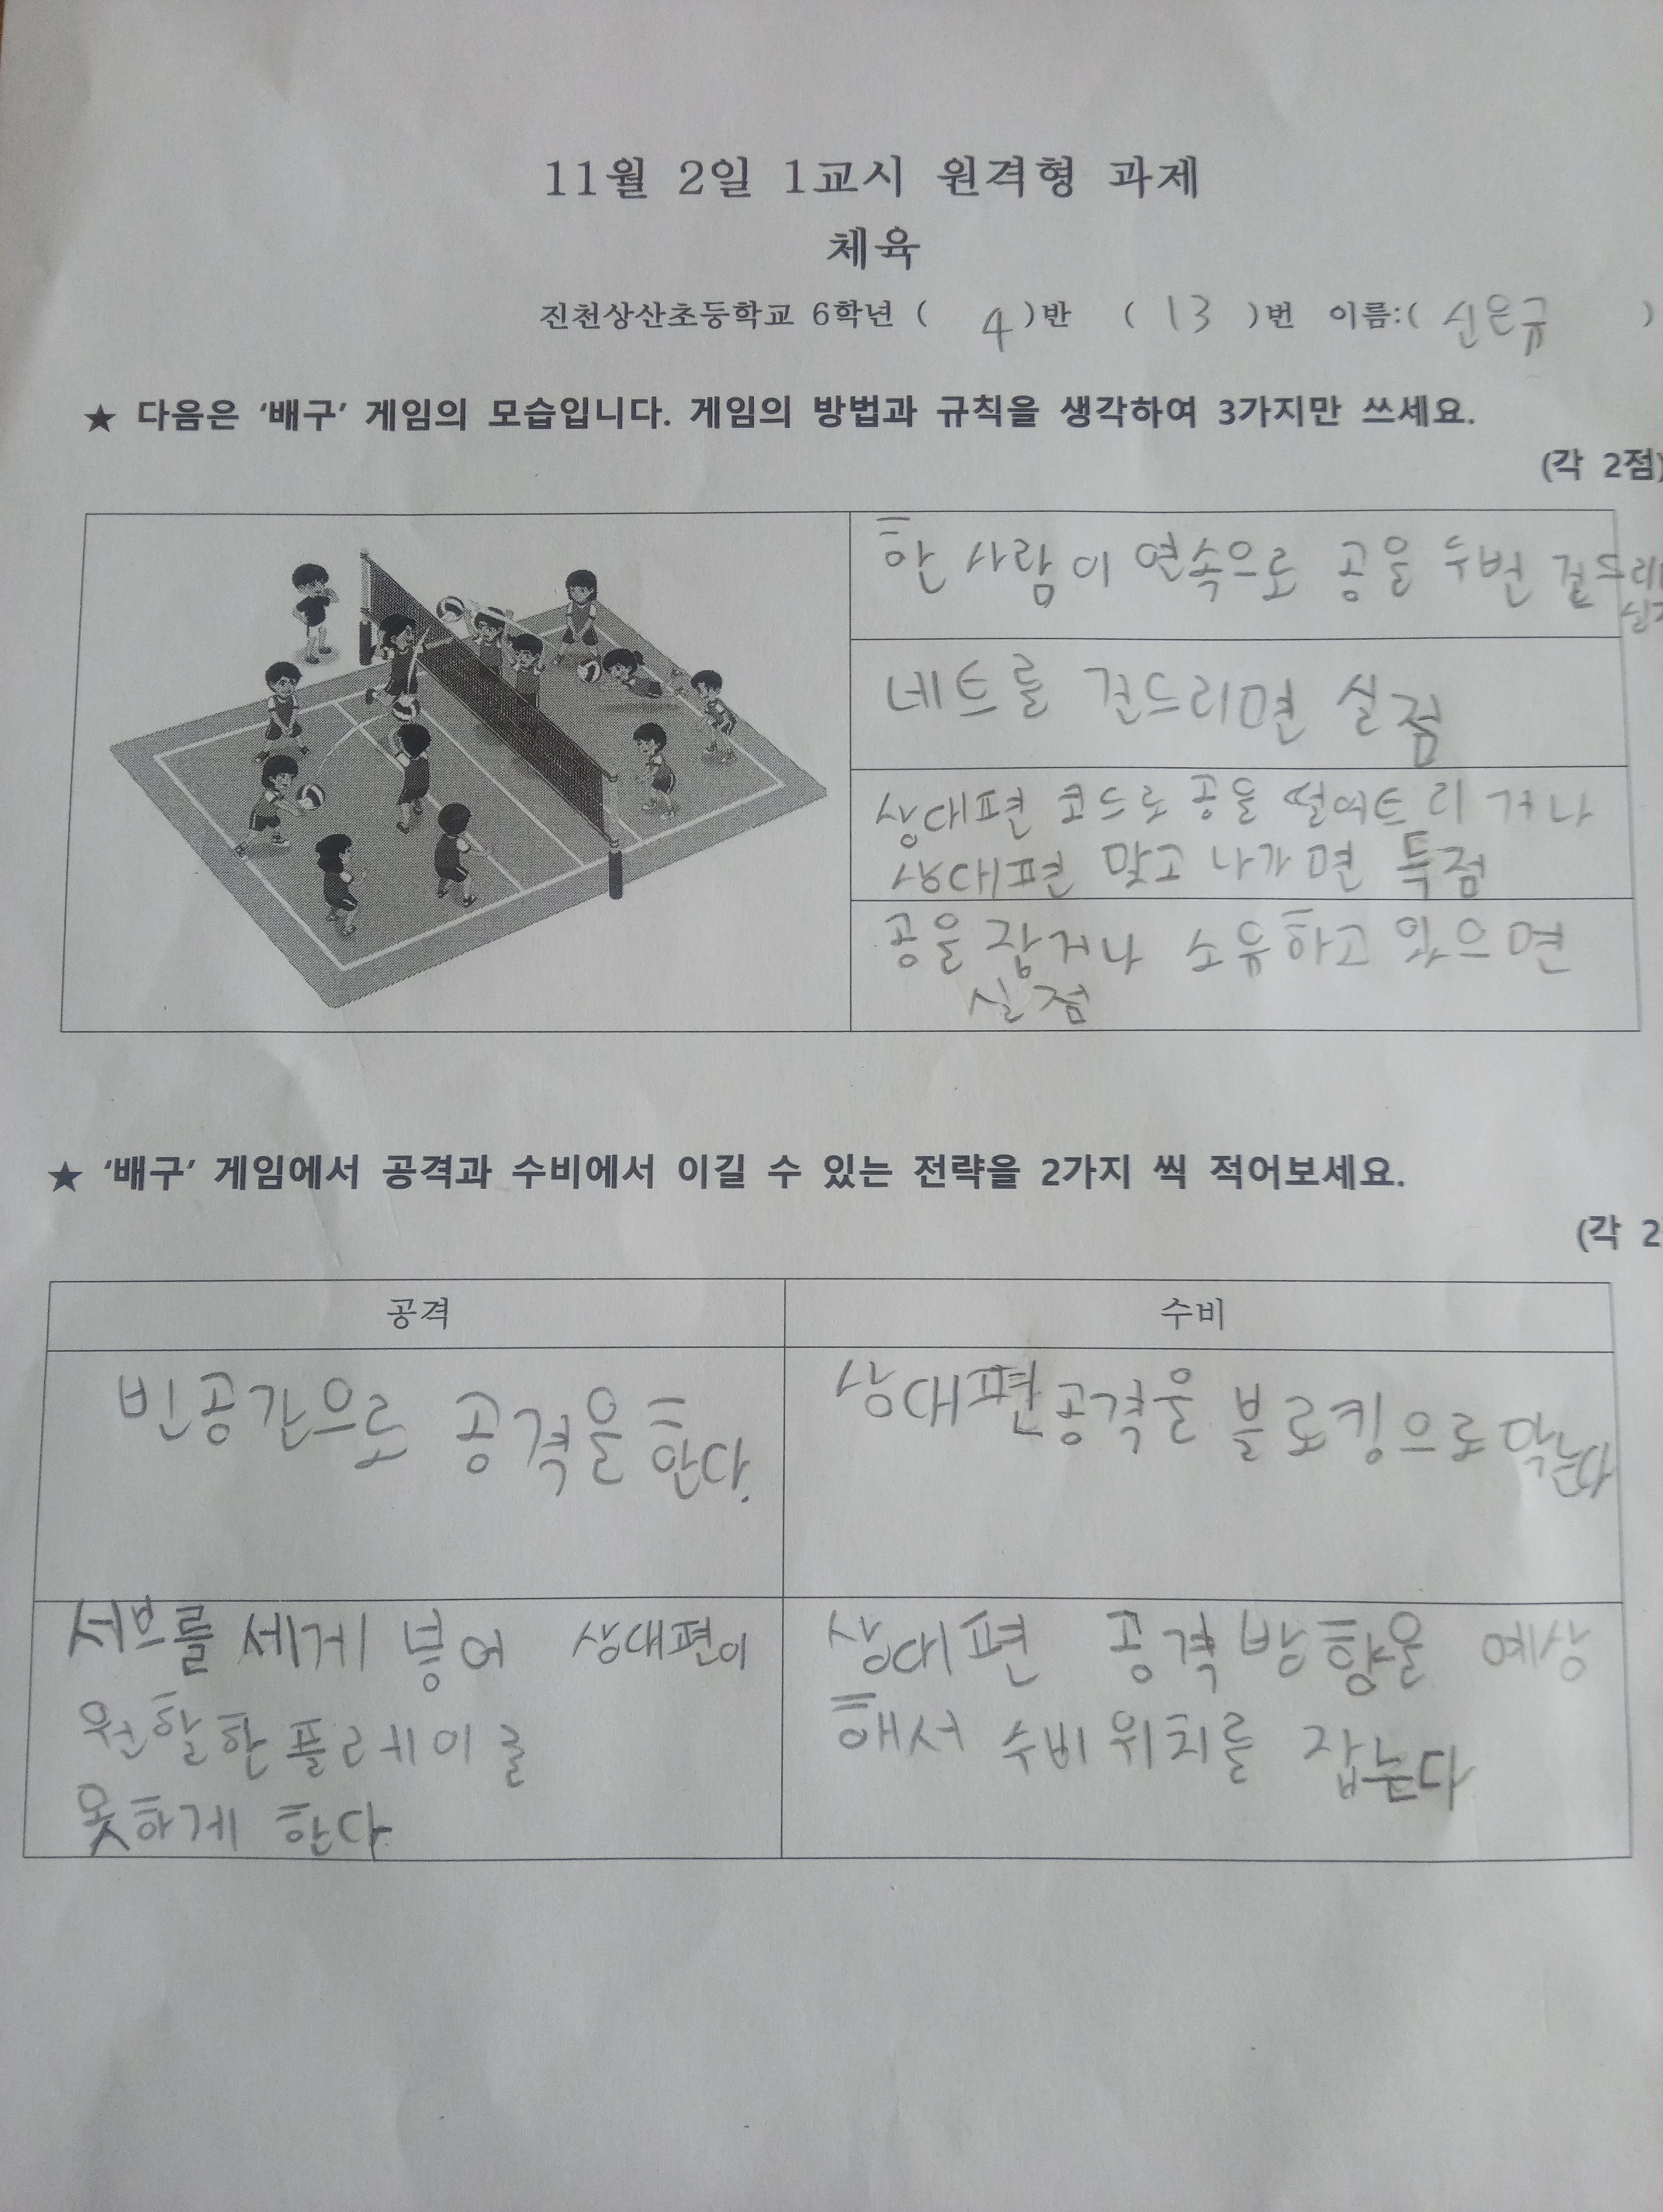 11월 2일 1교시 원격형 과제
체육
진천상산초등학교 6학년 ( 4 )반 ( 13 )번 이름:( 신은규 )
★ 다음은 ‘배구’ 게임의 모습입니다. 게임의 방법과 규칙을 생각하여 3가지만 쓰세요.
(각 2점)
한 사람이 연속으로 공을 두번 걷드리
네트를 건드리면 실점
상대편 코드로 공을 떨어트리거나
상대편 맞고 나가면 득점
공을 잡거나 소유하고 있으면
실점
★ ‘배구’ 게임에서 공격과 수비에서 이길 수 있는 전략을 2가지 씩 적어보세요.
(각 2
공격
수비
빈공간으로 공격을 한다.
상대편 공격을 블로킹으로 막는다
서브를 세게 넣어 상대편이
원할한 플레이를
못하게 한다
상대편 공격방향을 예상
해서 수비위치를 잡는다